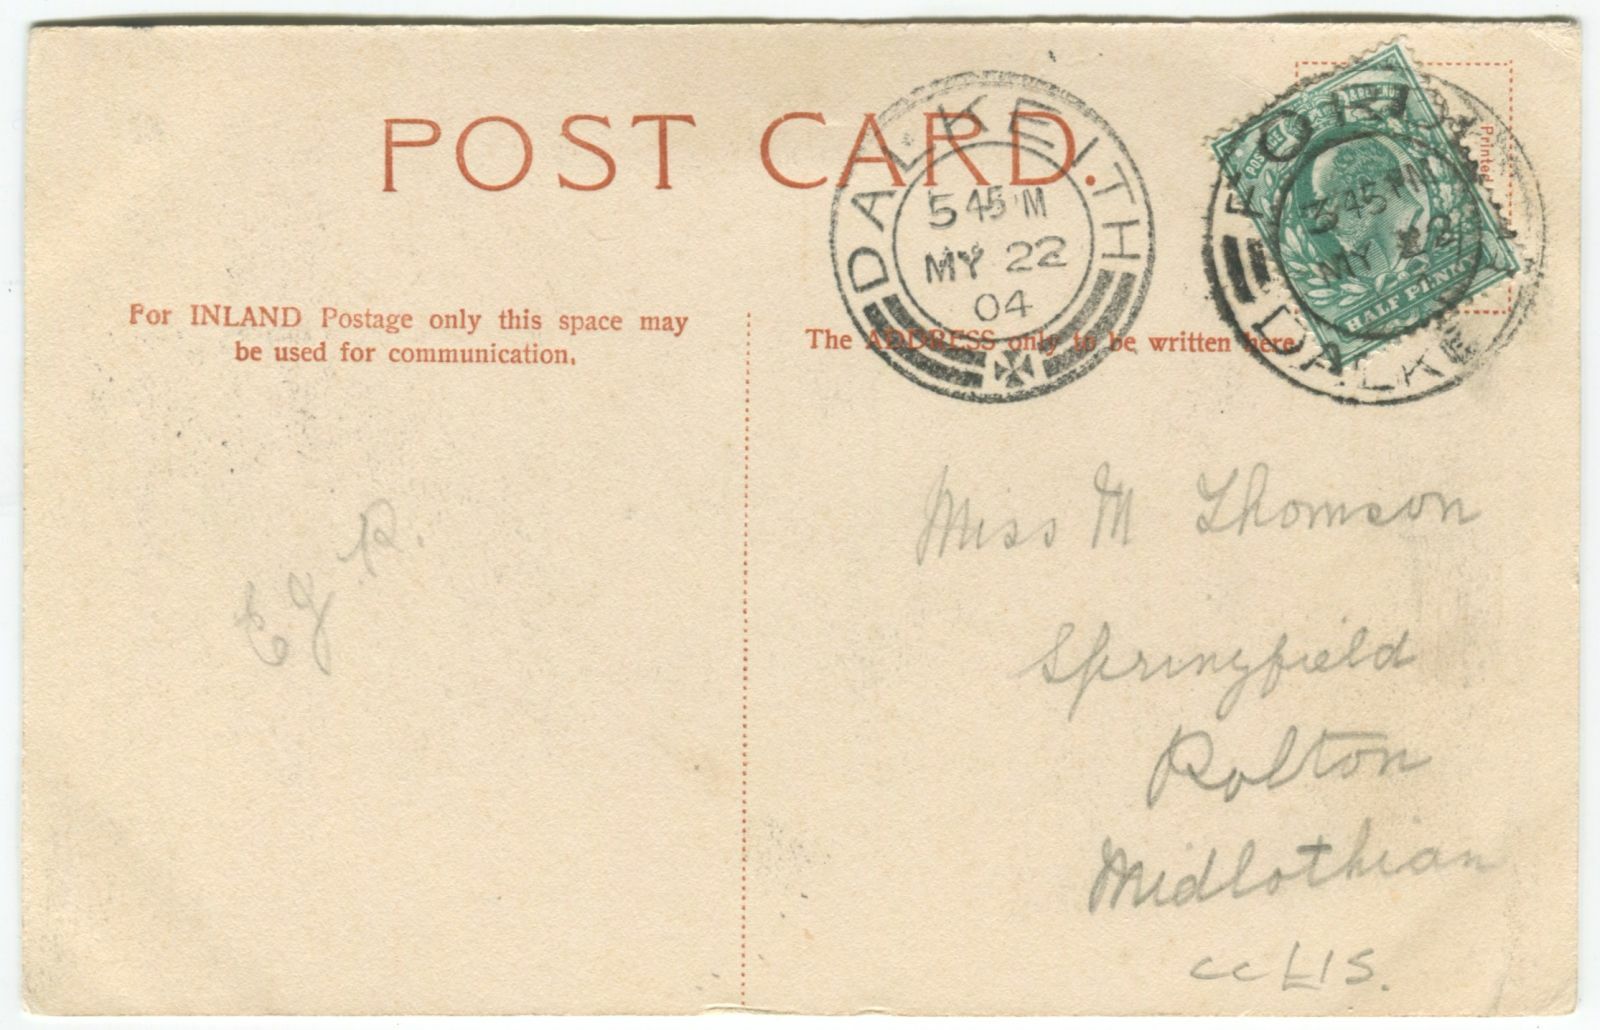 POST CARD.
DALKEITH
5 45 PM
MY 22
04
FORD
3 45 PM
MY 22
DALKE
POSTAGE
REVENUE
HALF PENNY
Printed
For INLAND Postage only this space may
be used for communication.
The ADDRESS only to be written here
E G R.
Miss M Thomson
Springfield
Polton
Midlothian